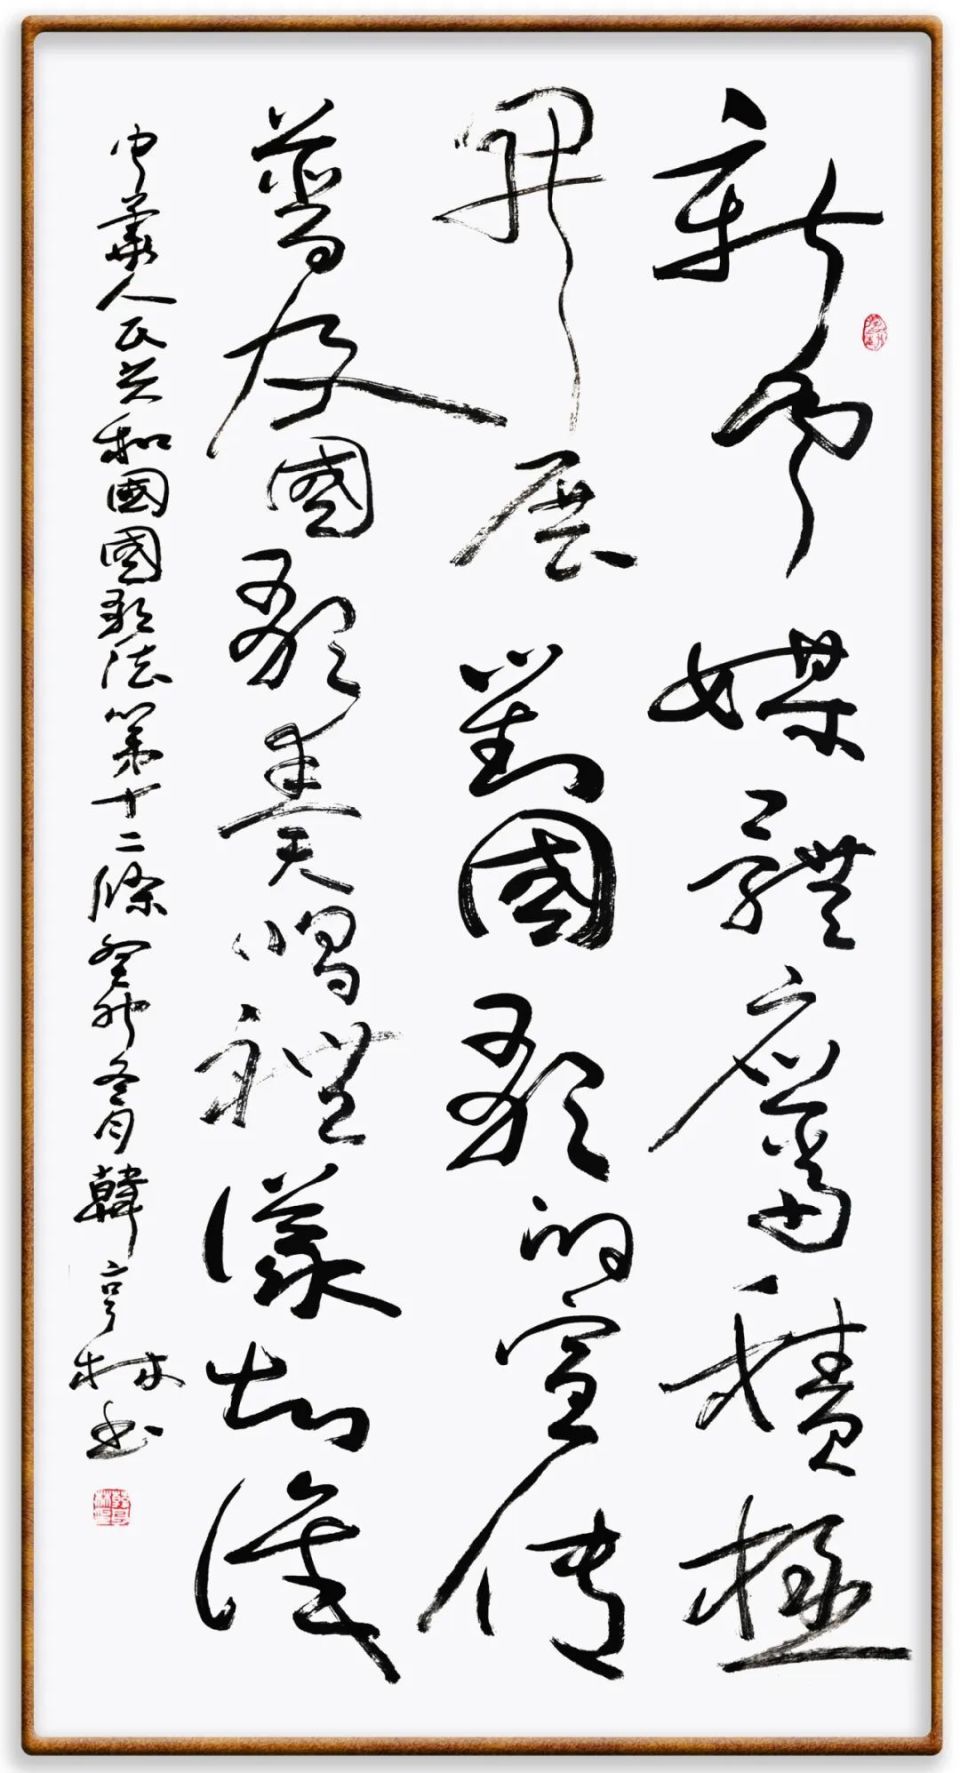 新聞媒體應當積極
開展對國歌的宣傳
普及國歌奏唱禮儀知識
中華人民共和國國歌法第十二條癸卯冬月韓亨林書